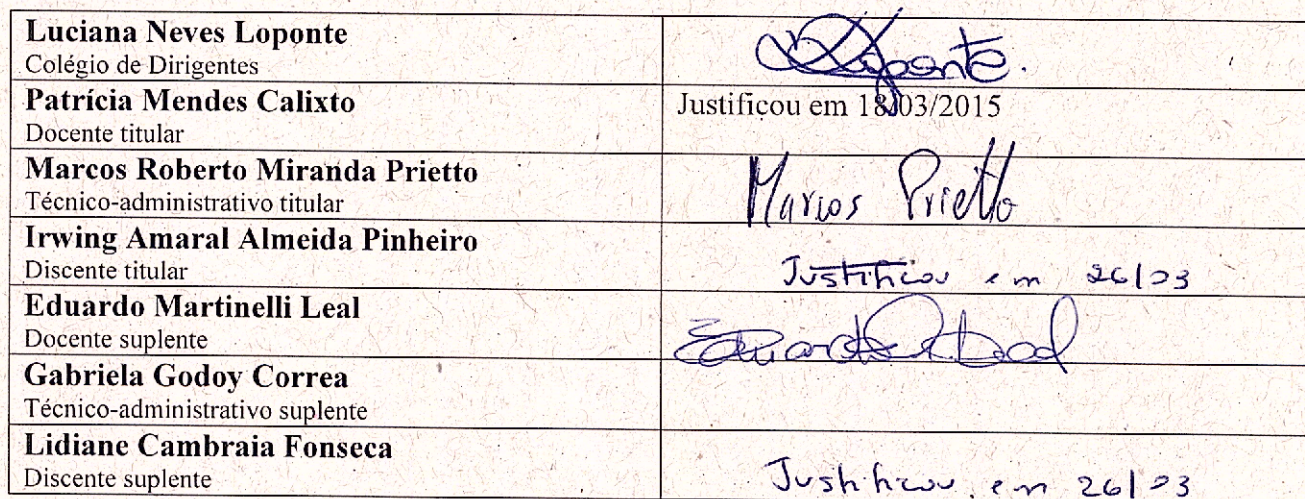 Luciana Neves Loponte
Colégio de Dirigentes
Loponte.
Patrícia Mendes Calixto
Justificou em 18/03/2015
Docente titular
Marcos Roberto Miranda Prietto
Técnico-administrativo titular
Marcos Prietto
Irwing Amaral Almeida Pinheiro
Discente titular
Justificou em 26/03
Eduardo Martinelli Leal
Docente suplente
Eduardo Leal
Gabriela Godoy Correa
Técnico-administrativo suplente
Lidiane Cambraia Fonseca
Discente suplente
Justificou em 26/03